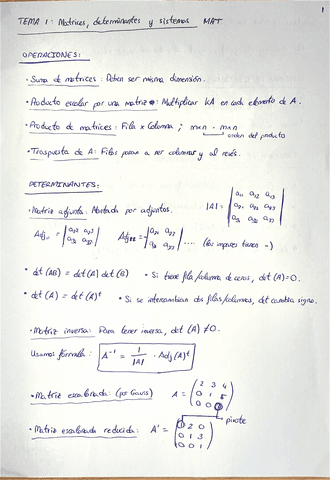 1
TEMA 1: Matrices, determinantes y sistemas MAT
OPERACIONES:
· Suma de matrices: Deben ser misma dimensión.
· Producto escalar por una matriz: Multiplicar KA en cada elemento de A.
· Producto de matrices: Fila x Columna; m×n · m×n
orden del producto
· Traspuesta de A: Filas pasan a ser columnas y al revés.
DETERMINANTES:
· Matriz adjunta: Formada por adjuntos. |A| = | a₁₁ a₁₂ a₁₃ |
| a₂₁ a₂₂ a₂₃ |
| a₃₁ a₃₂ a₃₃ |
Adj₁₁ = | a₂₂ a₂₃ | Adj = | a₂₁ a₂₃ | .... (los impares tienen -)
| a₃₂ a₃₃ | | a₃₁ a₃₃ |
· det (AB) = det (A) det (B) · Si tiene fila/columna de ceros, det (A)=0.
· det (A) = det (A)ᵗ · Si se intercambian dos filas/columnas, det cambia signo.
· Matriz inversa: Para tener inversa, det (A) ≠ 0.
Usamos fórmula: A⁻¹ = 1/|A| · Adj (A)ᵗ
· Matriz escalonada: (por Gauss) A = ( 2 3 4 )
( 0 1 5 )
( 0 0 )
pivote
· Matriz escalonada reducida: A' = ( 1 2 0 )
( 0 1 3 )
( 0 0 1 )